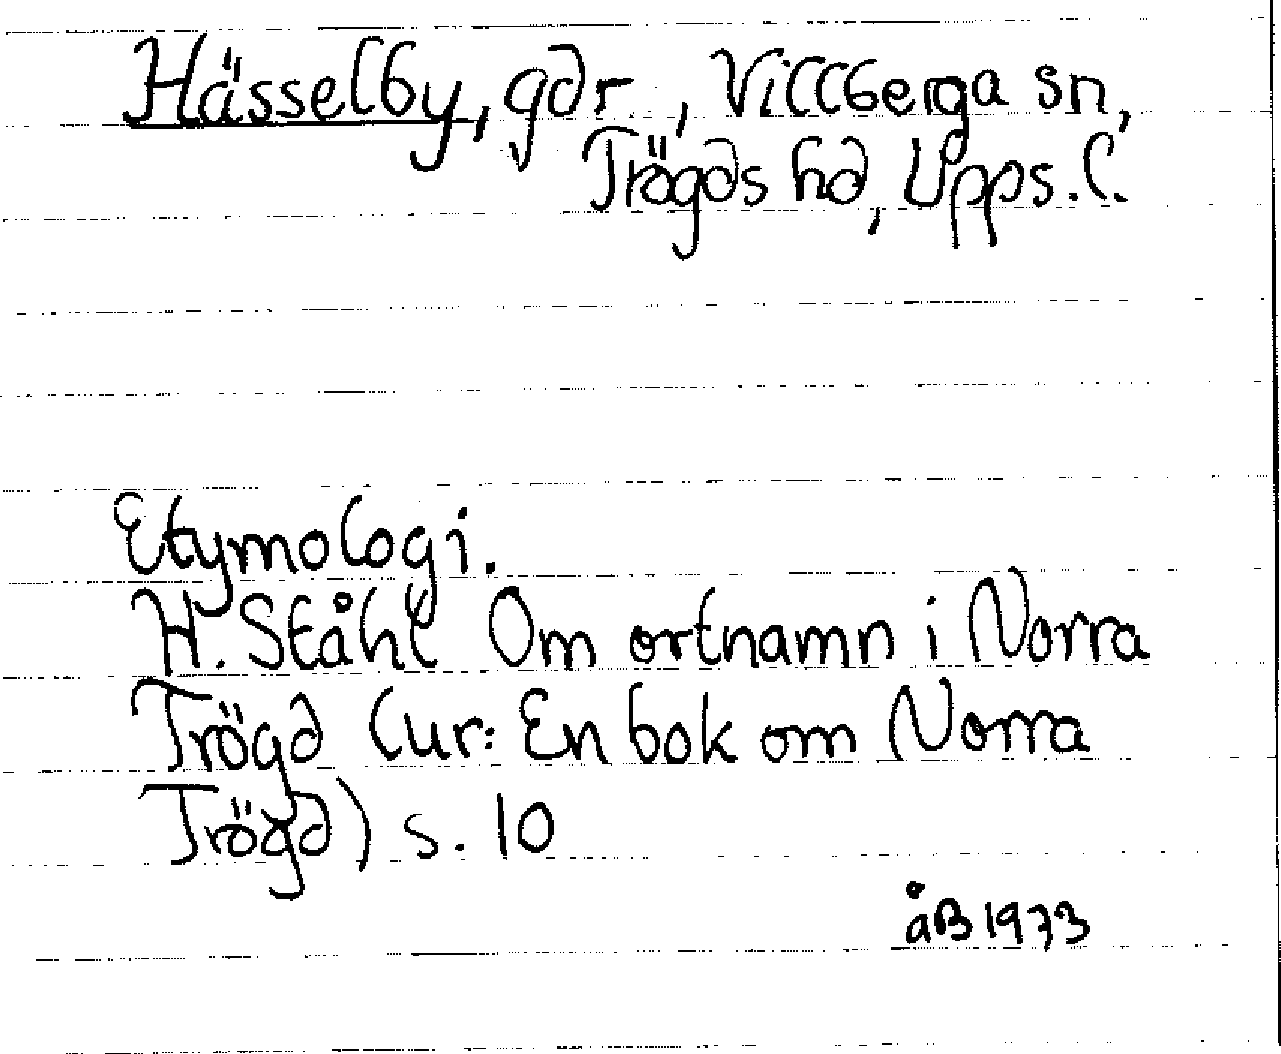 Hässelby, gdr., Villberga sn,
Trögds hd, Upps. l.
Etymologi.
H. Ståhl Om ortnamn i Norra
Trögd (ur: En bok om Norra
Trögd) s. 10
åB 1973